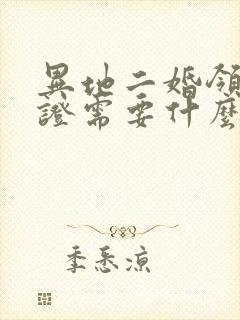 異地二婚領
證需要什麼
季悉涼